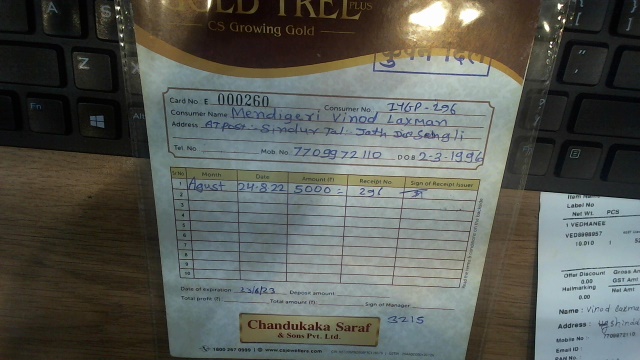 GOLD TREE PLUS
CS Growing Gold
कुपन दिले
Card No. E 000260 Consumer No.: IYGP-296
Consumer Name Mendigeri Vinod Laxman
Address At post - Sindur Tal - Jath Dis Sangli
Tel. No. Mob. No. 7709972110 DOB 2-3-1996
Sr.No. Month Date Amount (₹) Receipt No. Sign of Receipt Issuer
1 Agust 24.8.22 5000= 296
2
3
4
5
6
7
8
9
10
Date of expiration 23/6/23 Deposit amount
Total profit (₹) Total amount (₹) Sign of Manager
3215
Chandukaka Saraf
& Sons Pvt. Ltd.
Label No
Net Wt. PCS
1 VEDHANEE
10.010
Offer Discount Gross
0.00 GST Amt
Hallmarking Net Amt
0.00
Name : Vinod
Address :
Mobile No
Email ID :
PAN No.
A
S
Z
Fn